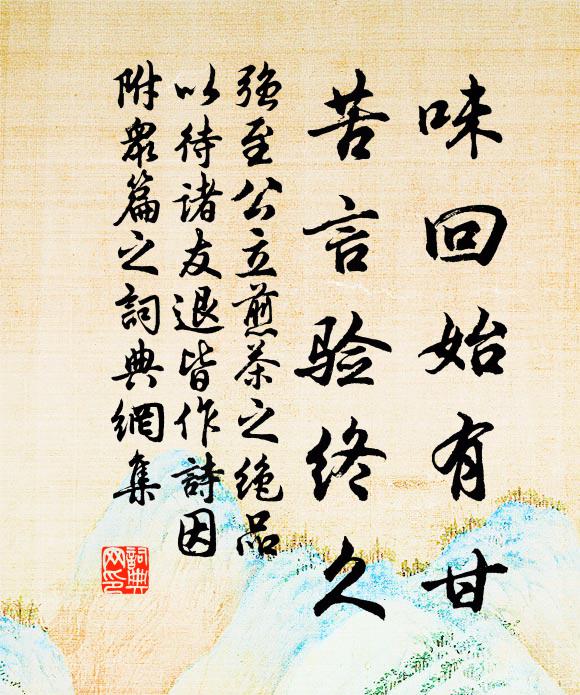 味回始有甘
苦言验终久
强至公立煎茶之绝品
以待诸友退皆作詩因
附眾篇之詞典網集
詞典網印